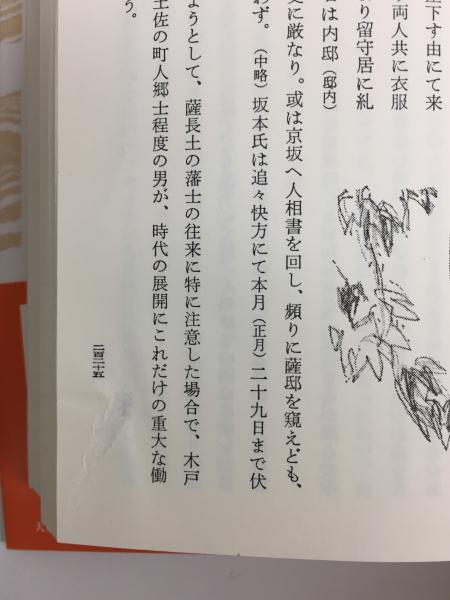 座下す由にて来
り両人共に衣服
り留守居に糺
は内邸（邸内）
に厳なり。或は京坂へ人相書を回し、頻りに薩邸を窺えども、
わず。（中略）坂本氏は追々快方にて本月（正月）二十九日まで伏
ようとして、薩長土の藩士の往来に特に注意した場合で、木戸
土佐の町人郷士程度の男が、時代の展開にこれだけの重大な働
う。
二百二十五